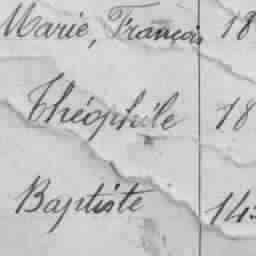 Marie, François 18
Théophile 18
Baptiste 14